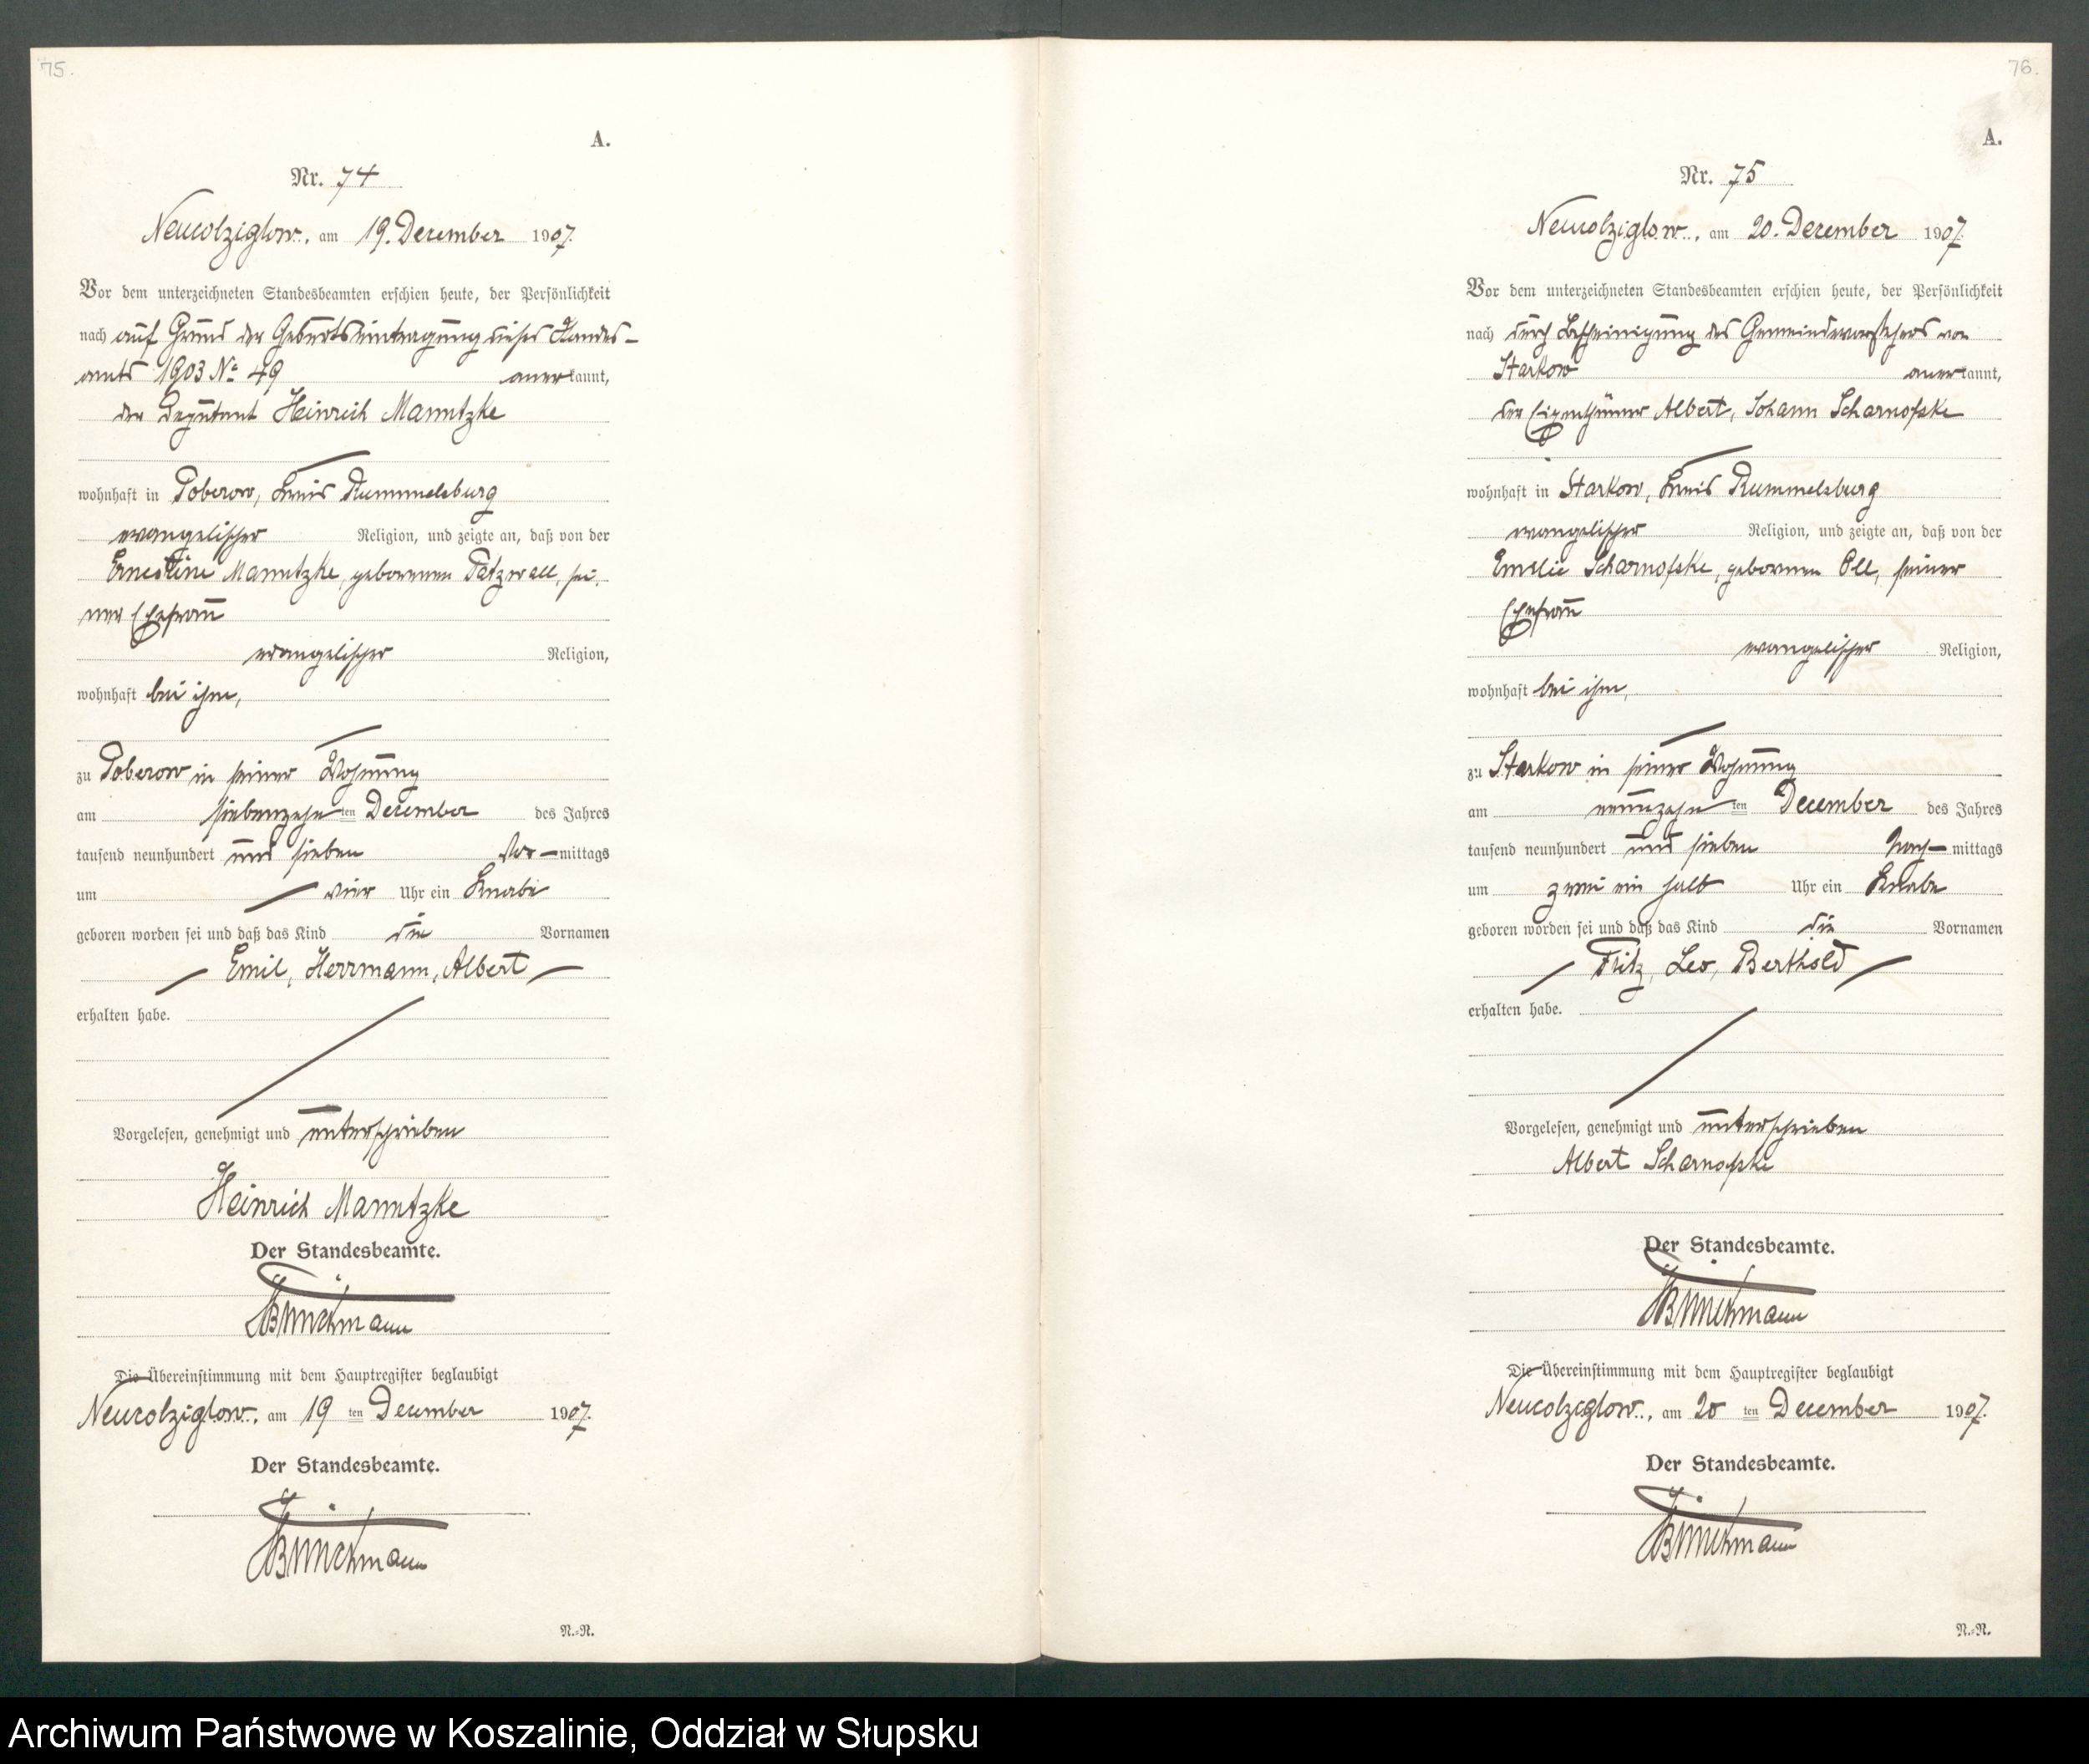 75.
A.
Nr. 74
Neucolziglow, am 19. Dezember 1907.
Vor dem unterzeichneten Standesbeamten erschien heute, der Persönlichkeit
nach auf Grund der Geburtseintragung dieses Standes-
amts 1903 No 49 anerkannt,
der Deputant Heinrich Manntzke
wohnhaft in Poberow, Kreis Rummelsburg
evangelischer Religion, und zeigte an, daß von der
Ernestine Manntzke, geborenen Patzwall, sei-
ner Ehefrau
evangelischer Religion,
wohnhaft bei ihm,
zu Poberow in seiner Wohnung
am siebenzehnten Dezember des Jahres
tausend neunhundert und sieben Vor-mittags
um vier Uhr ein Knabe
geboren worden sei und daß das Kind die Vornamen
Emil, Herrmann, Albert
erhalten habe.
Vorgelesen, genehmigt und unterschrieben
Heinrich Manntzke
Der Standesbeamte.
Die Übereinstimmung mit dem Hauptregister beglaubigt
Neucolziglow, am 19 ten Dezember 1907.
Der Standesbeamte.
N.=N.
76.
A.
Nr. 75
Neucolziglow, am 20. Dezember 1907.
Vor dem unterzeichneten Standesbeamten erschien heute, der Persönlichkeit
nach durch Bescheinigung des Gemeindevorstehers von
Starkow anerkannt,
der Eigenthümer Albert, Johann Scharnofske
wohnhaft in Starkow, Kreis Rummelsburg
evangelischer Religion, und zeigte an, daß von der
Emilie Scharnofske, geborenen Oll, seiner
Ehefrau
evangelischer Religion,
wohnhaft bei ihm,
zu Starkow in seiner Wohnung
am neunzehnten Dezember des Jahres
tausend neunhundert und sieben Nach-mittags
um zwei ein halb Uhr ein Knabe
geboren worden sei und daß das Kind die Vornamen
Fritz, Leo, Berthold
erhalten habe.
Vorgelesen, genehmigt und unterschrieben
Albert Scharnofske
Der Standesbeamte.
Die Übereinstimmung mit dem Hauptregister beglaubigt
Neucolziglow, am 20 ten Dezember 1907.
Der Standesbeamte.
N.=N.
Archiwum Państwowe w Koszalinie, Oddział w Słupsku